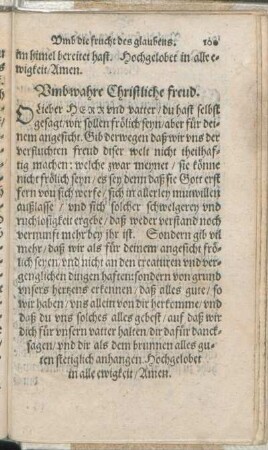 Vmb die frucht des glaubens.
im himel bereitet hast. Hochgelobet in alle e-
wigkeit/Amen.
Vmb wahre Christliche freud.
O Lieber HERR vnd vatter/du hast selbst
gesagt/wir sollen frölich seyn/aber für dei-
nem angesicht. Gib derwegen daß wir vns der
verfluchten freud diser welt nicht theilhaf-
tig machen: welche zwar meynet/sie könne
nicht frölich seyn/es sey denn daß sie Gott erst
fern von sich werfe/sich in allerley mutwillen
außlasse/vnd sich solcher schwelgerey vnd
ruchlosigkeit ergebe/daß weder verstand noch
vernunft mehr bey jhr ist. Sondern gib vil
mehr/daß wir als für deinem angesicht frö-
lich seyen/vnd nicht an den creaturen vnd ver-
genglichen dingen haften: sondern von grund
vnsers hertzens erkennen/daß alles gute/so
wir haben/vns allein von dir herkomme/vnd
daß du vns solches alles gebest/auf daß wir
dich für vnsern vatter halten/dir dafür danck-
sagen/vnd dir als dem brunnen alles gu-
ten stetiglich anhangen. Hochgelobet
in alle ewigkeit/Amen.